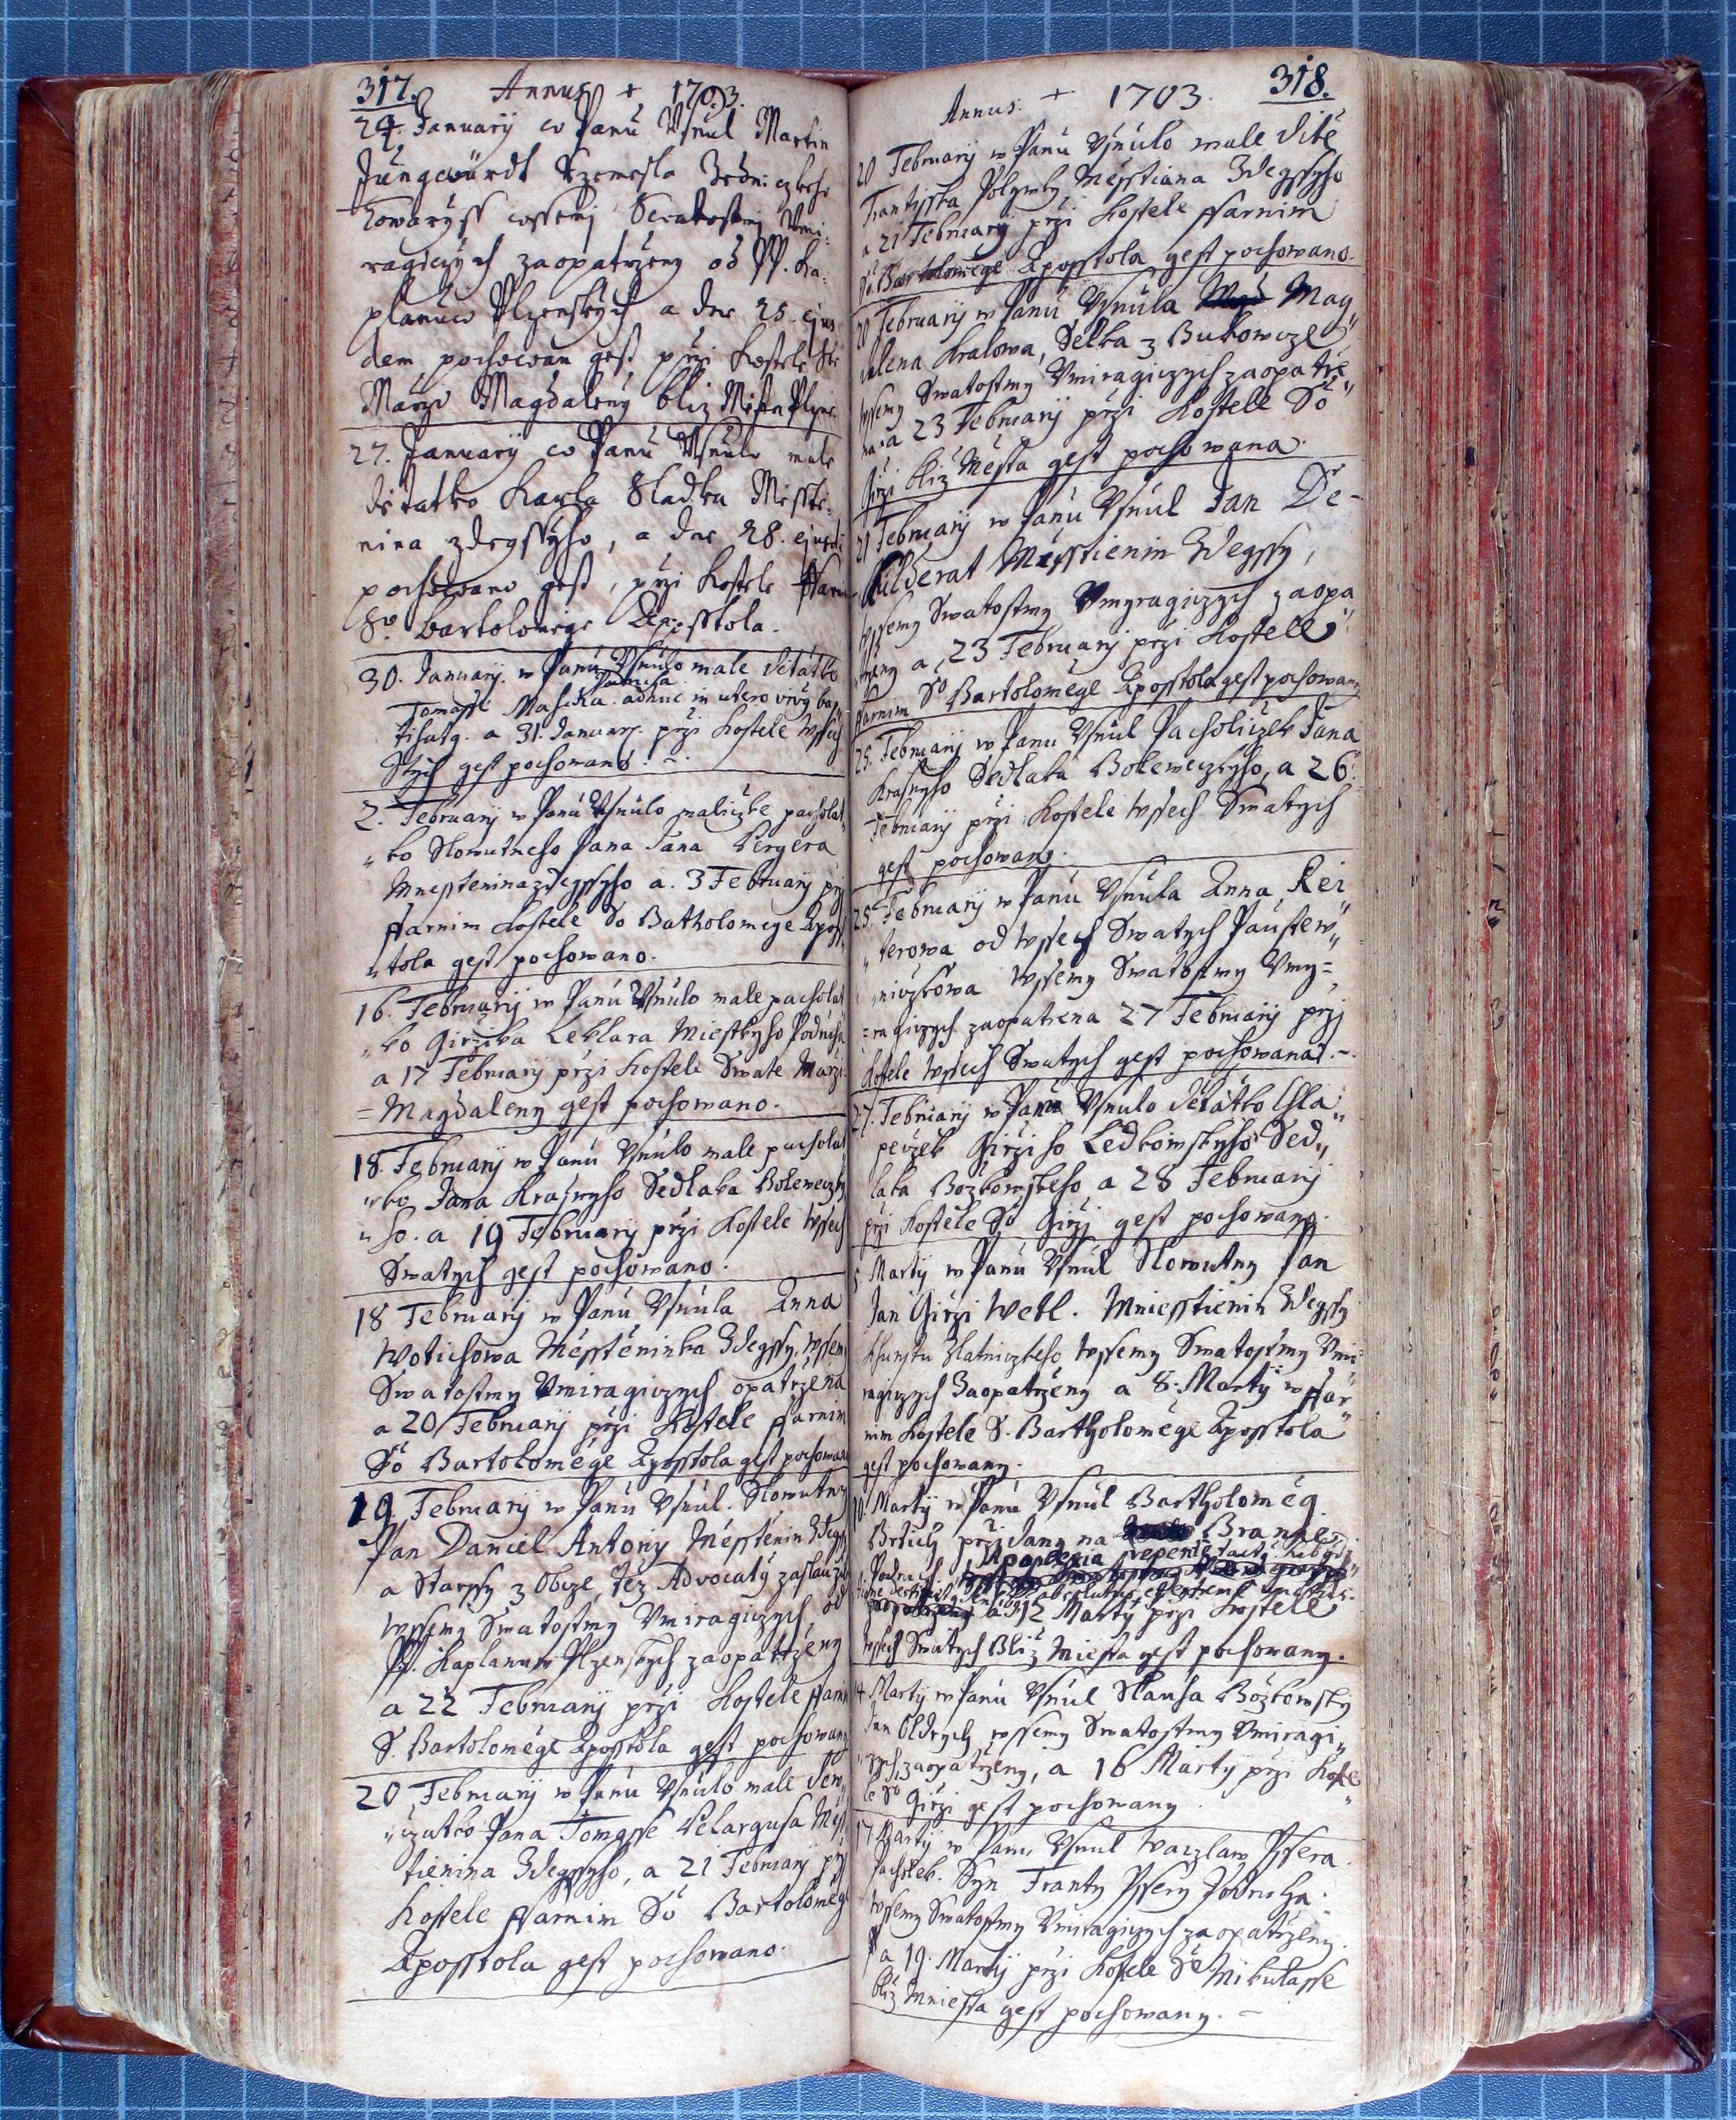 317. Annus + 1703.
24. Januarij w Panu Usnul Martin
Jungwürdt Rzemesla
Towaryss wssemj Swatostmj Umi-
ragiczých zaopatrzeny od PP. Ka-
planuw Plzenskych a dne 25. ejus
dem, pochowan gest, przi kostele Ste
Marzi Magdaleny bliz Mesta Plzne.
27. Januarij w Panu Usnulo male
detatko Karla Sladka Messtie-
nina zdegssyho, a dne 28. ejusd:
pochowano gest, przi kostele ffarni
So. Bartolomege Aposstola.
30. Januarij. w Panu Usnulo male detatko
Podruha
Tomasse Masska. adhuc in utero bap
tisatg. a 31. Januarj. przi kostele wssech
Stych gest pochowano. -.
2. Februarij w Panu Usnulo maliczke pacholat
"ko Slowutneho Pana Jana Pergera
Mnesstenina zdegssyho a. 3 Februarij prj
ffarnim kostele So Bartholomege Aposs
"tola gest pochowano.
16. Februarij w Panu Usnulo male pacholat
"ko Girzika Leklara Miestkyho Podruha
a 17 Februarij przi kostele Swate Marzi
=Magdaleny gest pochowano.
18. Februarij w Panu Usnulo male pacholat
"ko Jana Krasnyho Sedlaka Bolewczky
"ho. a 19 Februarij przi kostele wssech
Swatych gest pochowano.
18 Februarij w Panu Usnula Anna
Wotichowa Messténinka Zdegssy, wssemj
Swatostmy Umiragiczych opatrzena
a 20 Februarij przi kostele ffarnim
So Bartolomége Aposstola gest pochowana
19. Februarij w Panu Usnul. Slowutny
Pan Daniel Antony Messtenin Zdegssy
a Starssy z Obcze, téz Advocatus
wssemy Swatostmy Umiragiczych od
PP. Kaplanuw Plzenskych zaopatrzeny
a 22 Februarij przi kostele ffarni
S. Bartolomége Aposstola gest pochowany
20 Februarij w Panu Usnulo male dew,,
"czatko Pana Tomasse Pelargusa Mess
tienina Zdegssyho, a 21 Februarij prj
kostele ffarnim So Bartolomég
Aposstola gest pochowano.
Annus: + 1703. 318.
20 Februarij w Panu Usnulo male dite
Frantisska Polywky Messtiana Zdegssyho
a 21 Februarij przi kostele ffarnim
So. Bartolomége Aposstola gest pochowano.
20 Februarij w Panu Usnula Mag
dalena Kralowa, Selka z Bukowcze
wssemy Swatostmy Umiragiczych zaopatrze"
na a 23 Februarij przi kostele So
Girzi bliz Mésta gest pochowana.
21 Februarij w Panu Usnul Jan De-
Messtienin Zdegssy,
wssemy Swatostmy Umyragiczych zaopa
"trzeny a, 23 Februarj przi kostele
ffarnim So Bartolomége Aposstola gest pochowany
25. Februarij w Panu Usnul Pacholiczek Jana
Krasnyho Sedlaka Bolewczkyho, a 26.
Februarij przi kostele wssech Swatych
gest pochowany.
25. Februarij w Panu Usnula Anna Rei"
"terowa od wssech Swatych Paustew"
"niczkowa wssemy Swatostmy Umy=
=ragiczych zaopatrena 27 Februarij przj
kostele wssech Swatych gest pochowana. -
27. Februarij w Panu Usnulo détatko Chla"
peczek Girziho Ledkowskyho Sed,,
laka Bozkowskeho a 28 Februarij
przi kostele So Girzj gest pochowany.
5. Martij w Panu Usnul Slowutny Pan
Jan Girzi Wetl. Mniesstienin Zdegssy
khunstu Zlatniczkeho wssemy Swatostmy Umi
ragiczych Zaopatrzeny a 8. Martij w ffar"
nim kostele S. Bartholomége Aposstola
gest pochowany.
10. Martij w Panu Usnul Bartholomég
przidany na Branne
Podruch. Apoplexia repente tactus
a 12 Martij przi kostele
wssech Swatych Bliz Miesta gest pochowany.
14. Martij w Panu Usnul Slauha Bozkowsky
Jan Oldrych wssemy Swatostmy Umiragi,,
czych zaopatrzeny, a 16 Martij przi koste"
le So Girzi gest pochowany.
17 Martij w Panu Usnul Waczlaw Pssera
Pacholek. Syn Franty Pssery Podruha.
wssemy Swatostmy Umiragiczych zaopatrzeny.
a 19. Martij przi kostele Se Mikulasse
bliz Mniesta gest pochowany. -